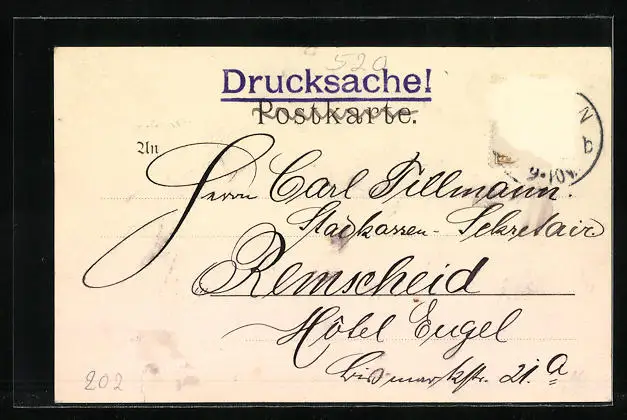 520
Drucksache!
Postkarte.
An
Herrn Carl Tillmann.
Stadkassen-Sekretair
in Remscheid
Hôtel Engel
Bismarkstr. 21.a
202